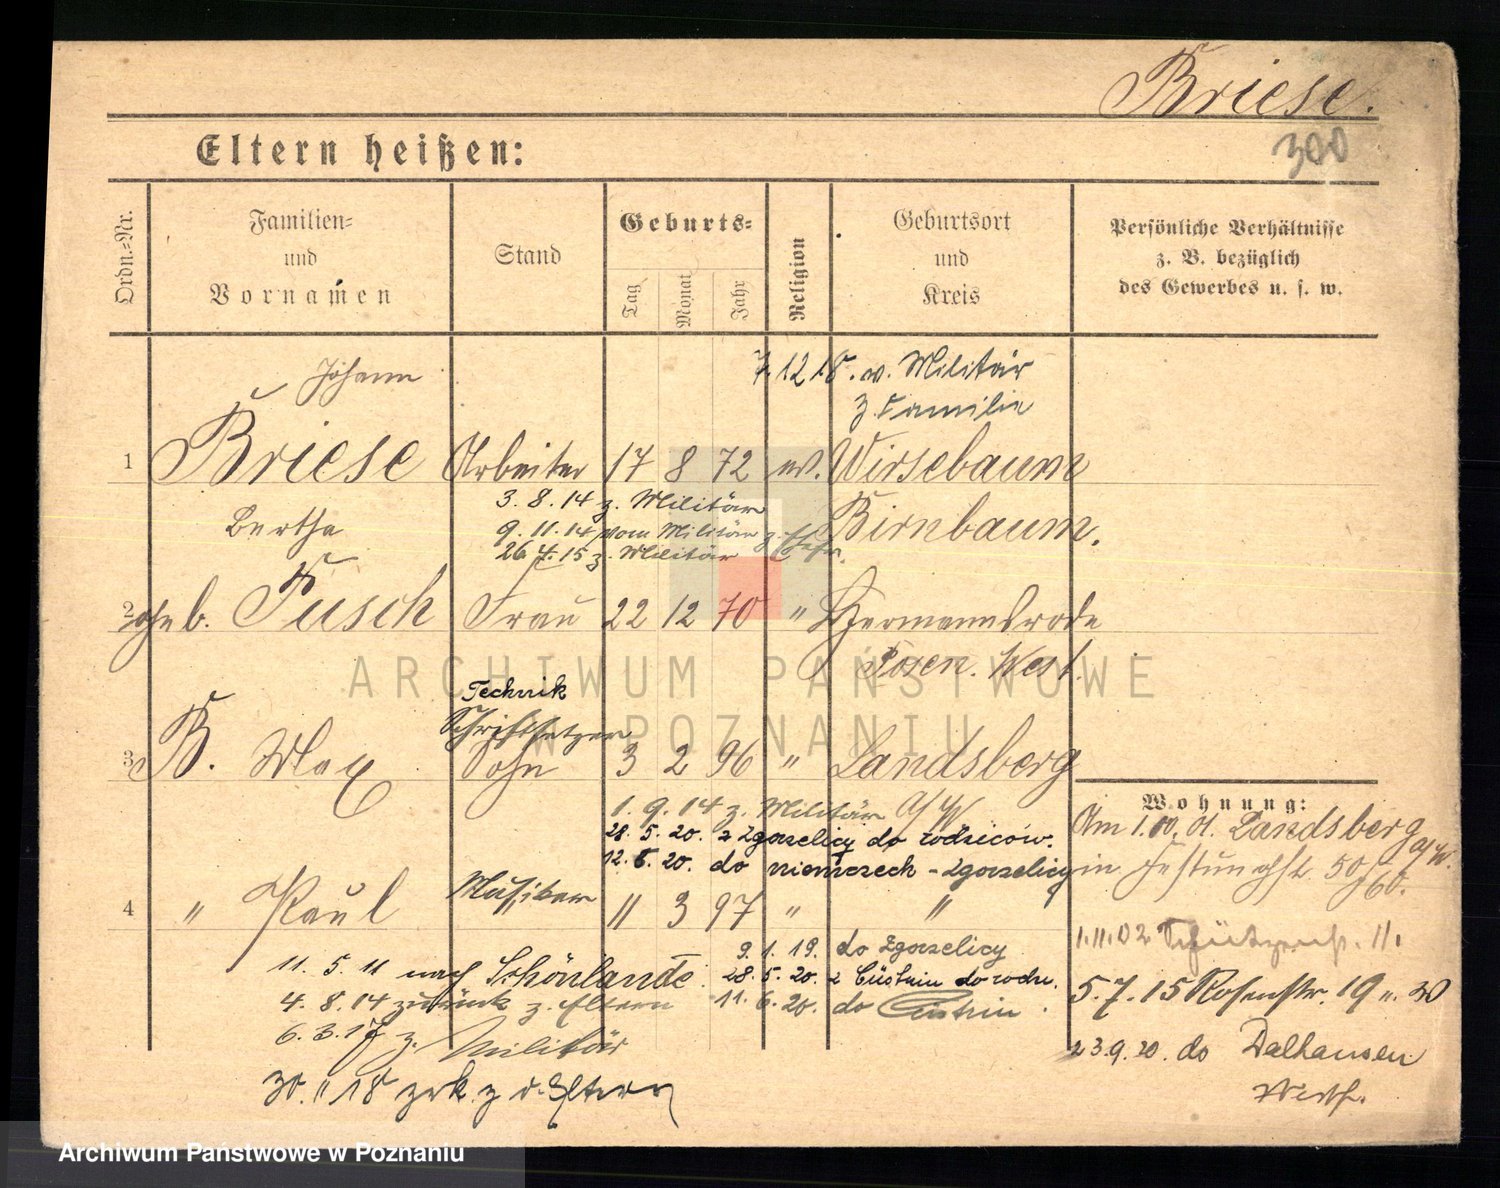 Briese.
300
Eltern heißen:
Ordn.=Nr.
Familien=
und
Vornamen
Stand
Geburts=
Tag
Monat
Jahr
Religion
Geburtsort
und
Kreis
Persönliche Verhältnisse
z. B. bezüglich
des Gewerbes u. s. w.
Johann
7.12.18. v. Militär
z. Familie
1 Briese Arbeiter 17 8 72 ev. Wirsebaum
3. 8. 14 z. Militär
Bertha 9. 11. 14 vom Militär z.
Birnbaum.
26. 4. 15 z. Militär
2 geb. Tusch Frau 22 12 70 " Hermannsrode
Posen. West.
Technik
Schriftsetzer
3 B. Max Sohn 3 2 96 " Landsberg
a/W
1. 9. 14 z. Militär
28. 5. 20. z Zgorzelicy do rodziców.
12. 6. 20. do niemczech - Zgorzelicy
Musiker
4 " Paul 11 3 97 " "
9. 1. 19. do Zgorzelicy
11. 5. 11 nach Schönlanke
28. 5. 20. z Cüstrin do rodz.
4. 8. 14 zurück z. Eltern
11. 6. 20. do Cüstrin.
6. 3. 17 z. Militär
30. 11 18 zrk. z. d. Eltern
Wohnung:
Am 1.00. Landsberg
a/W.
in 50/60.
1.11.02 11.
5.7.15 Rosenstr. 19
23.9.20. do Dalhausen
Westf.
ARCHIWUM PAŃSTWOWE
W POZNANIU
Archiwum Państwowe w Poznaniu